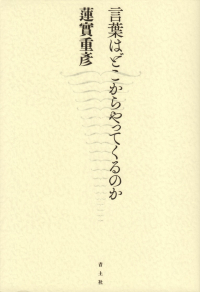 言葉はどこからやってくるのか
蓮實重彦
青土社